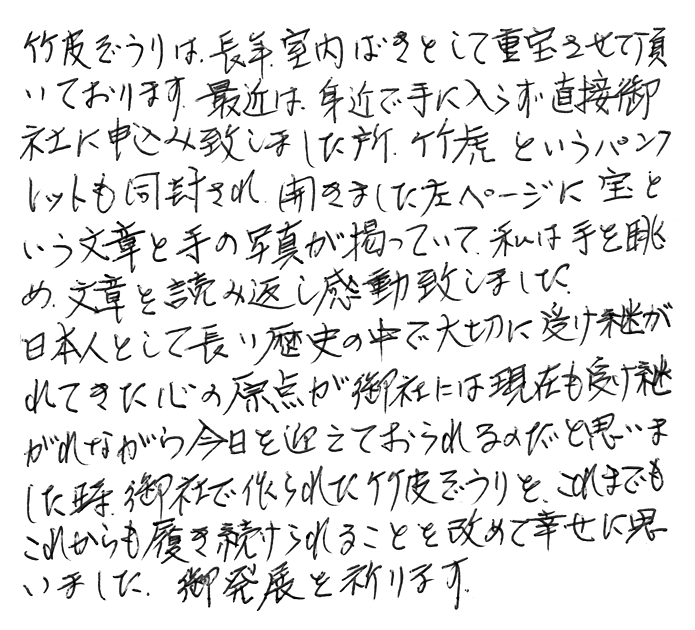 竹皮ぞうりは、長年、室内ばきとして重宝させて頂
いております。最近は、身近で手に入らず直接御
社に申込み致しました所、竹虎というパンフ
レットも同封され、開きました左ページに宝と
いう文章と手の写真が掲っていて、私は手を眺
め、文章を読み返し感動致しました。
日本人として長い歴史の中で大切に受け継が
れてきた心の原点が御社には現在も受け継
がれながら今日を迎えておられるのだと思いま
した時、御社で作られた竹皮ぞうりを、これまでも
これからも履き続けられることを改めて幸せに思
いました。御発展を祈ります。